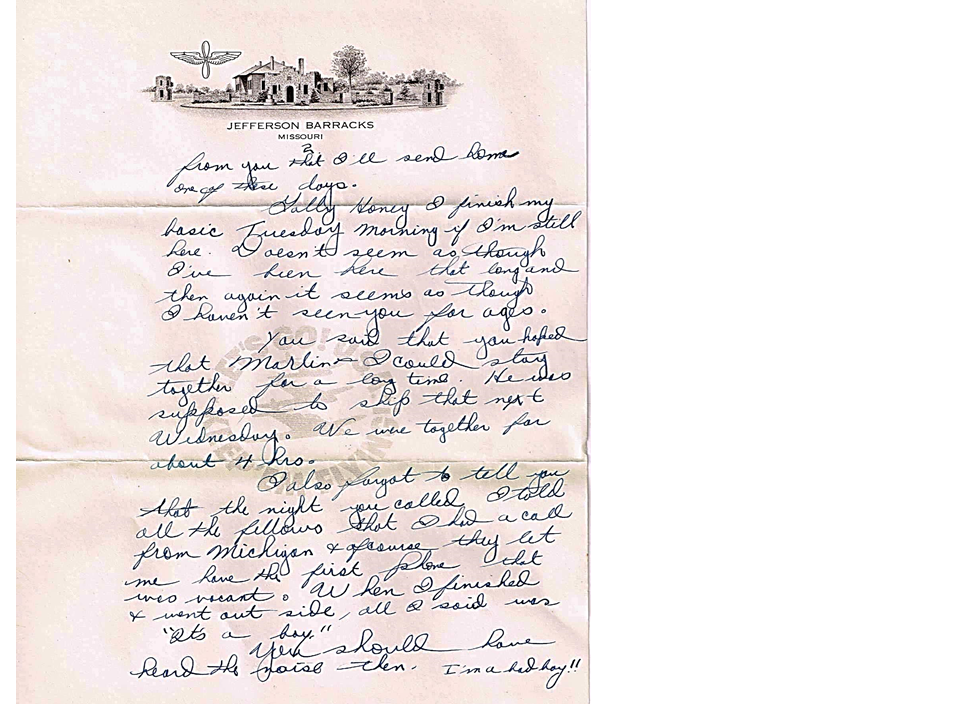 JEFFERSON BARRACKS
MISSOURI
2
from you that I'll send home
one of these days.
Golly Honey I finish my
basic Tuesday morning if I'm still
here. Doesn't seem as though
I've been here that long and
then again it seems as though
I haven't seen you for ages.
You said that you hoped
that Marlin & I could stay
together for a long time. He was
supposed to ship that next
Wednesday. We were together for
about 4 hrs.
I also forgot to tell you
that the night you called I told
all the fellows that I had a call
from Michigan & ofcourse they let
me have the first phone that
was vacant. When I finished
& went out side, all I said was
"It's a boy."
You should have
heard the noise then. I'm a bad boy!!
LET'S GO! U.S.A.
KEEP 'EM FLYING